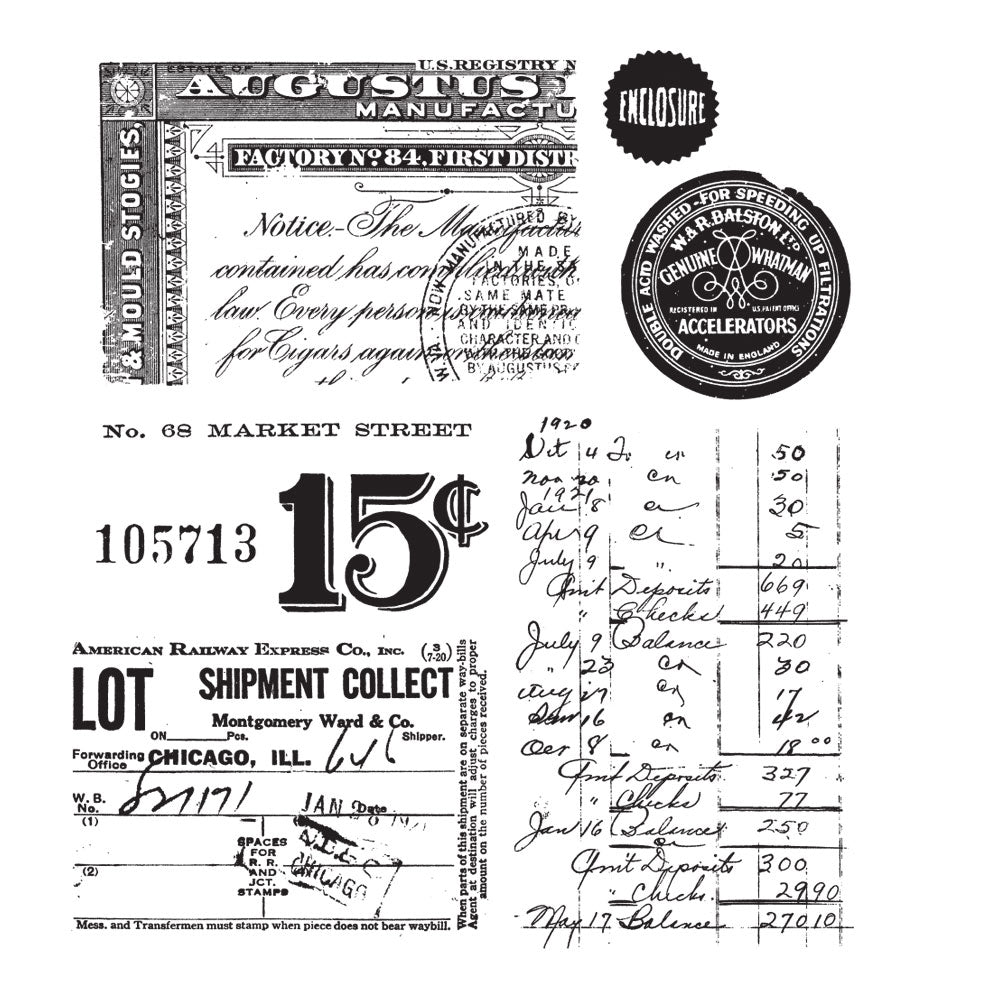 U.S. REGISTRY N
ESTATE OF
AUGUSTUS
MANUFACTU
& MOULD STOGIES,
FACTORY Nº 84, FIRST DISTR
Notice.-The Manufactur
contained has complied with
law. Every person is
for Cigars again
MANUFACTURED BY
MADE
IN THE SA
FACTORIES, O
SAME MATE
BY THE SAME PR
AND IDENTIC
CHARACTER AND
WITH THE GOOD
BY AUGUSTUS
ENCLOSURE
DOUBLE ACID WASHED-FOR SPEEDING UP FILTRATIONS
W. & R. BALSTON LTD
GENUINE WHATMAN
REGISTERED IN U.S. PATENT OFFICE
ACCELERATORS
MADE IN ENGLAND
No. 68 MARKET STREET
15¢
105713
AMERICAN RAILWAY EXPRESS CO., INC. (3 7-20)
LOT SHIPMENT COLLECT
Montgomery Ward & Co.
ON______Pcs. Shipper.
Forwarding Office CHICAGO, ILL. 646
W. B. No.
JAN Date
(1)
SPACES
FOR
R. R.
AND
JCT.
STAMPS
CHICAGO
(2)
Mess. and Transfermen must stamp when piece does not bear waybill.
When parts of this shipment are on separate way-bills
Agent at destination will adjust charges to proper
amount on the number of pieces received.
1920
Oct 4 50
50
1921
Jan 8 cr 30
Apr 9 cr 5
July 9 " 20
Amt Deposits 669
" Checks 449
July 9 Balance 220
" 23 cr 30
Aug 27 cr 17
16 cr 42
8 cr 18 00
Amt Deposits 327
" Checks 77
Jan 16 Balance 250
Amt Deposits 300
" Checks. 29 90
May 17 Balance 270 10